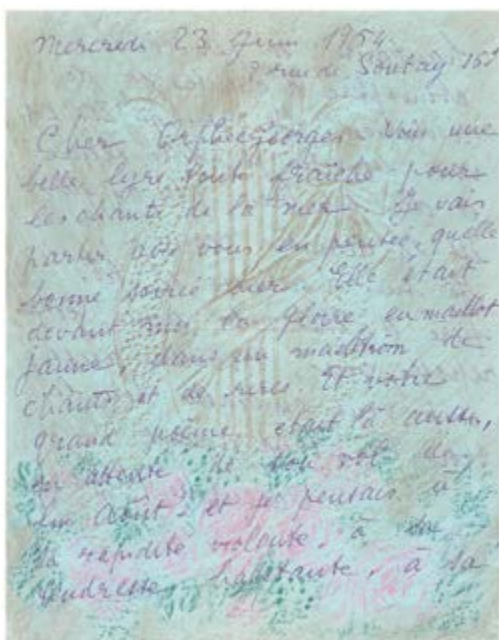 Mercredi 23 Juin 1954.
2 rue de 15e
Cher Orphée Georges. Voici une
belle lyre toute fraîche pour
les chants de la mer. Je vais
partir avec vous en pensée, quelle
bonne soirée hier. Elle était
devant moi la gloire en maillot
jaune, dans un de
chants et de rires. Et votre
grand poème était là aussi,
en attente de son vol de
fin Août, et je pensais à
sa rapidité volante, à sa
tendresse haletante, à sa